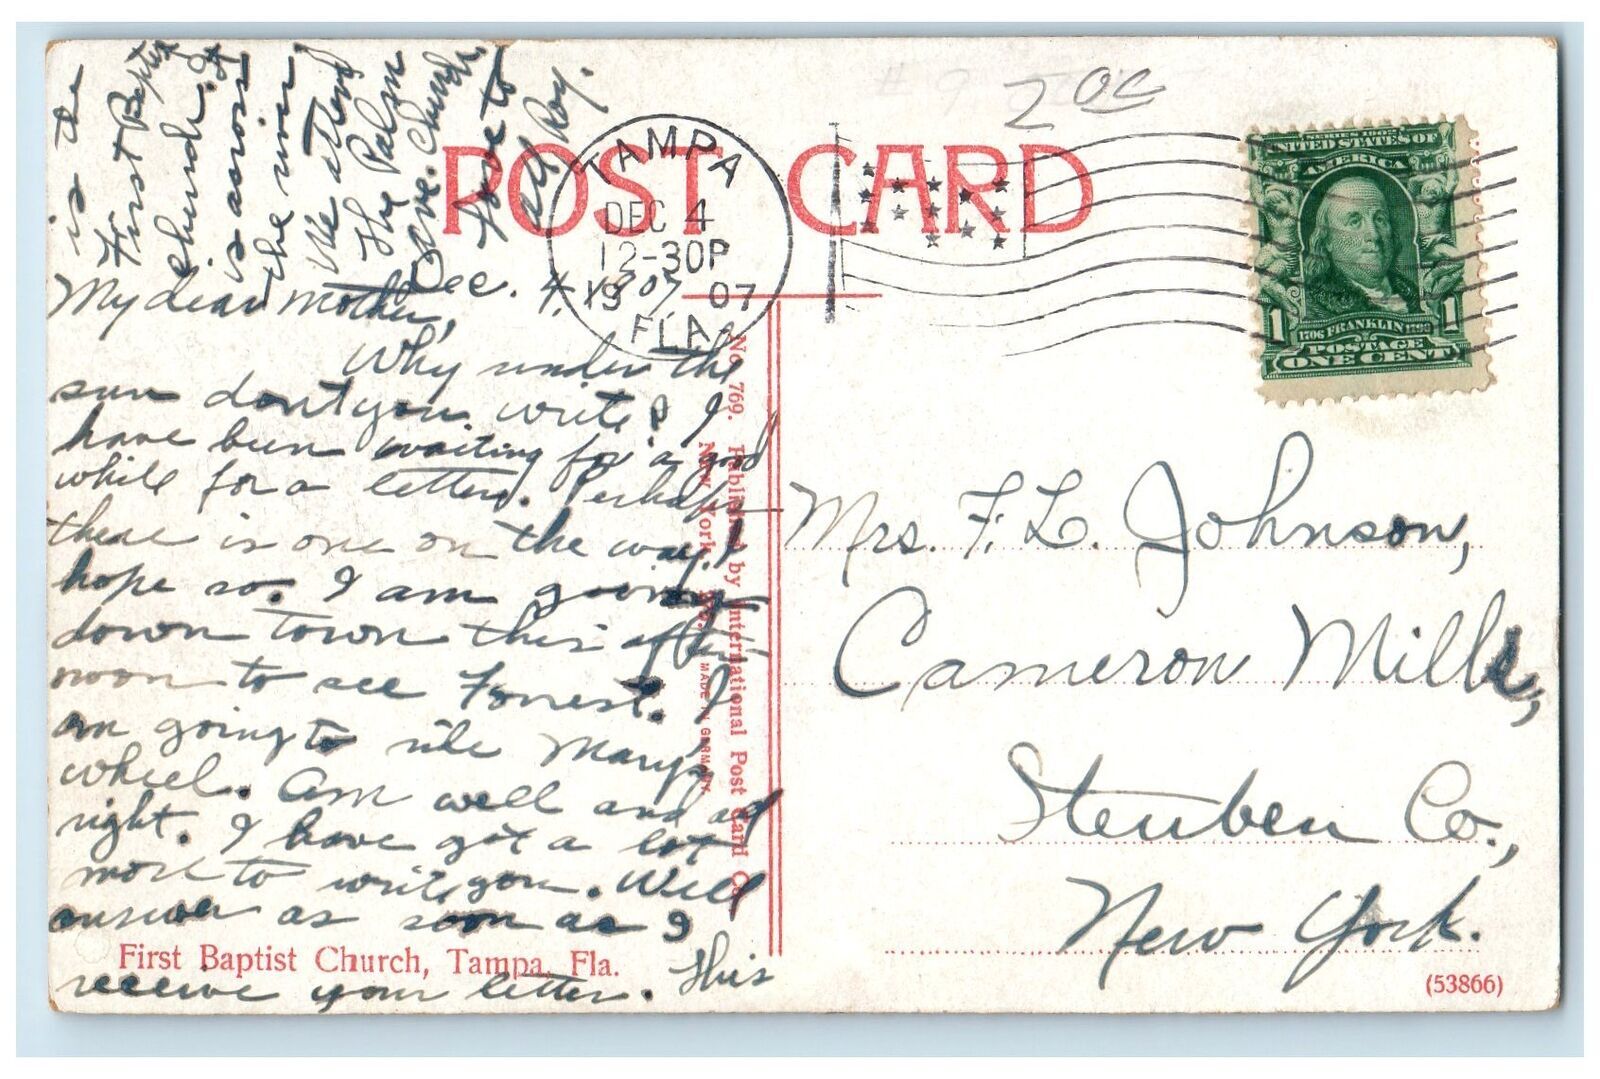 # 9
20c
POST CARD
TAMPA
DEC 4
12-30P
1907
FLA.
SERIES 1902
UNITED STATES OF
AMERICA
1706 FRANKLIN 1790
1 1
POSTAGE
ONE CENT
Dec. 4, 1907
My dear Mother,
Why under the
sun dont you write? I
have been waiting for a good
while for a letter. Perhaps
there is one on the way. I
hope so. I am going
down town this after-
noon to see Forrest. I
am going to ride Mary's
wheel. Am well and all
right. I have got a lot
more to write you. Will
answer as soon as I
receive your letter. This
is the
First Baptist
church. It
is across
the river
We attend
The Palm
Ave. Church.
Love to
all Roy.
Mrs. F. L. Johnson,
Cameron Mills,
Steuben Co.,
New York.
No. 769. Published by International Post Card Co.
New York. MADE IN GERMANY
First Baptist Church, Tampa, Fla.
(53866)